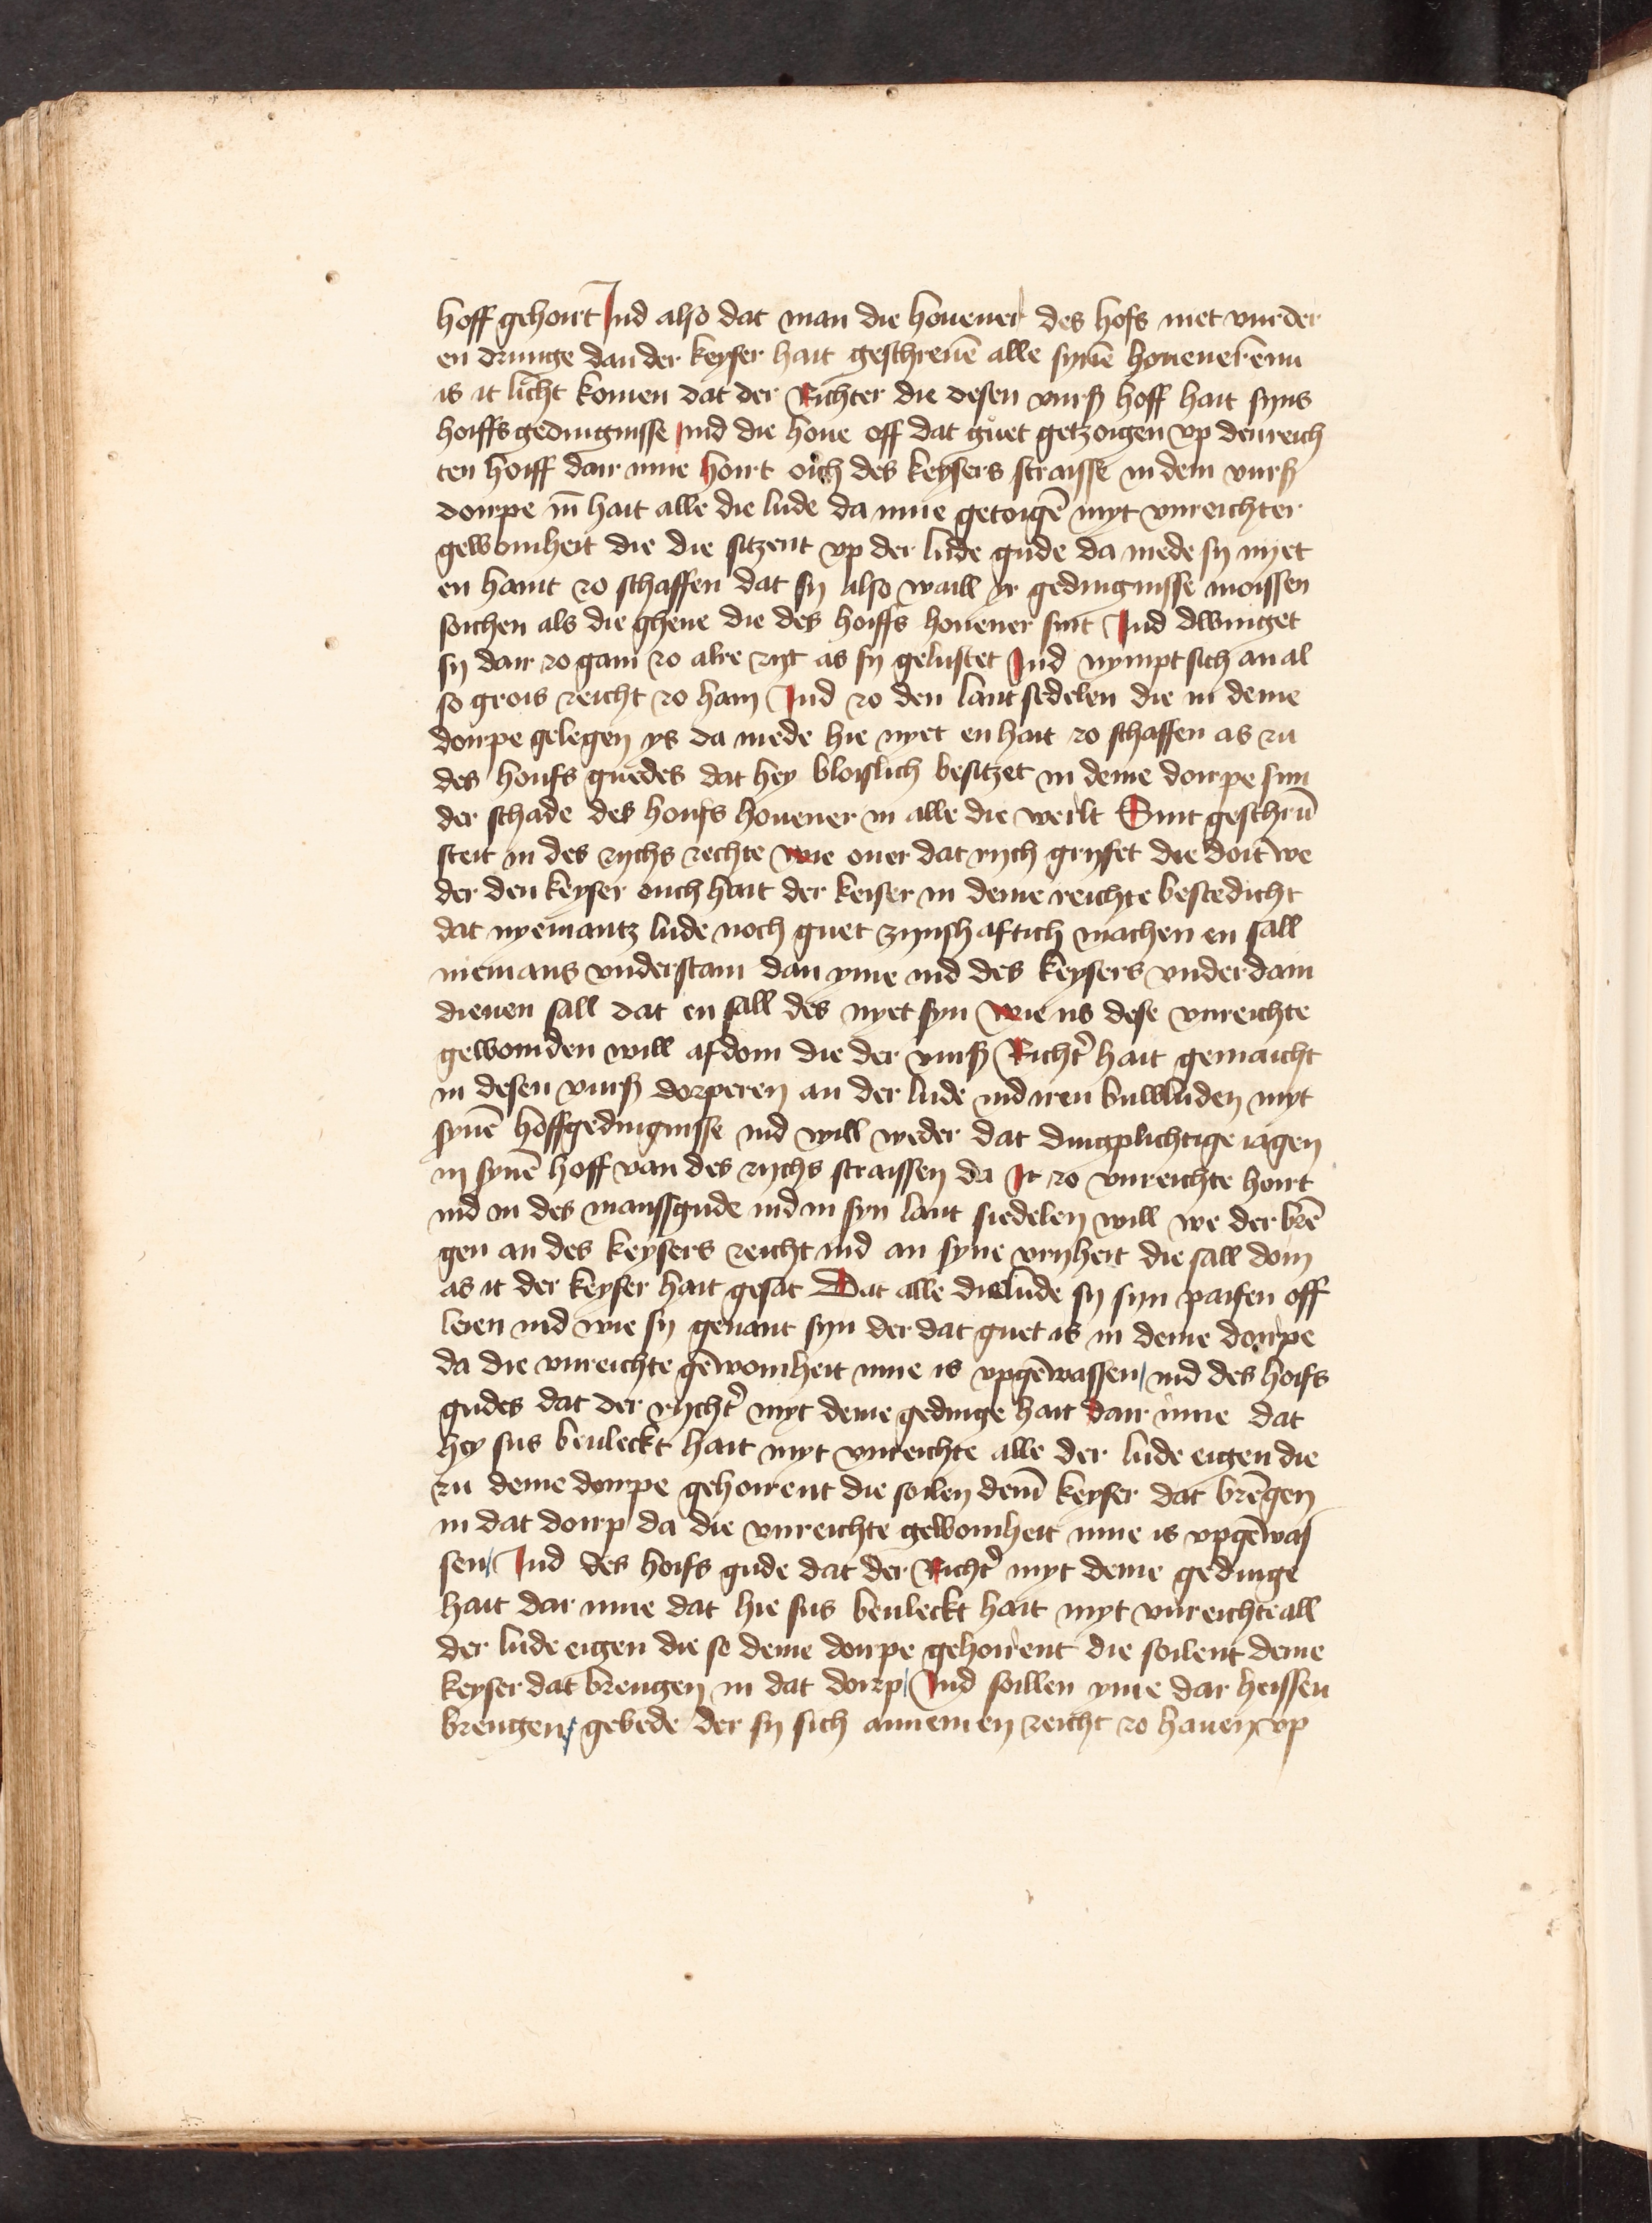 hoff gehoirt Ind also dat man die houener des hofs niet vurder
en drunge dan der keyser hait geschreuē alle synē houeneren nu
is it licht komen dat der Richter die desen vurß hoff hait syns
hoiffs gedingnisse Ind die houe off dat guet getzoigen vp den reich
ten hoiff dair inne hoirt oich des keysers straisse in dem vurß
dorpe in hait alle die lude da inne getoigē myt vnreichter
gewoinheit die die sitzent vp der lude gude da mede sy nyet
en haint zo schaffen dat sy also waill yr gedingnisse moissen
soichen als die ghene die des hoiffs houener sint Ind dwinget
sy dair zo gain zo alre zyt as sy gelustet Ind nympt sich an al
so grois reicht zo hain Ind zo den lantsedelen die in deme
dorpe gelegen ys da mede hie nyet en hait zo schaffen as zu
des hoifs guedes dat hey bloislich besitzet in deme dorpe sun
der schade des hoifs houener in alle die werlt Sint geschrū
steit in des rychs rechte wie ouer dat rych gryfet die doit we
der den keyser ouch hait der keiser in deme reichte bestedicht
dat nyemantz lude noch guet zynshafftich machen en sall
niemans vnderstain dan yme ind des keysers vnderdain
dienen sall dat en sall des nyet syn wie us dese vnreichte
gewoinden will afdoin die der vurß Richt' hait gemaicht
in desen vurß dorperen an der lude ind iren buwluden myt
synē hoffgedingnisse ind will weder dat dingplichtige iagen
in synē hoff van des rychs straissen da It zo vnreichte hoirt
ind in des manssgude ind in syn lant siedelen will we der brē
gen an des keysers reicht ind an syne vryheit die sall doin
as it der keyser hait gesat Dat alle die lude sy syn paifen off
leien ind wie sy genant syn der dat guet is in deme dorpe
da die vnreichte gēwoinheit inne is vpgēwassen ind des hoifs
gudes dat der rycht' myt deme gedinge hait dair inne dat
hey sus beuleckt hait myt vnreichte alle der lude eigen die
zu deme dorpe gehoirent die soilen demē keyser dat brēgen
in dat doirp da die vnreichte gewoinheit inne is vpgēwas
sen Ind des hoifs gude dat der Richt' myt deme gedinge
hait dar inne dat hie sus beuleckt hait myt vnreichte all
der lude eigen die so deme dorpe gehoirent die soilent deme
keyser dat brengen in dat doirp Ind soillen yme dar heissen
brengen gebede der sy sich annemen reicht zo hauen vp